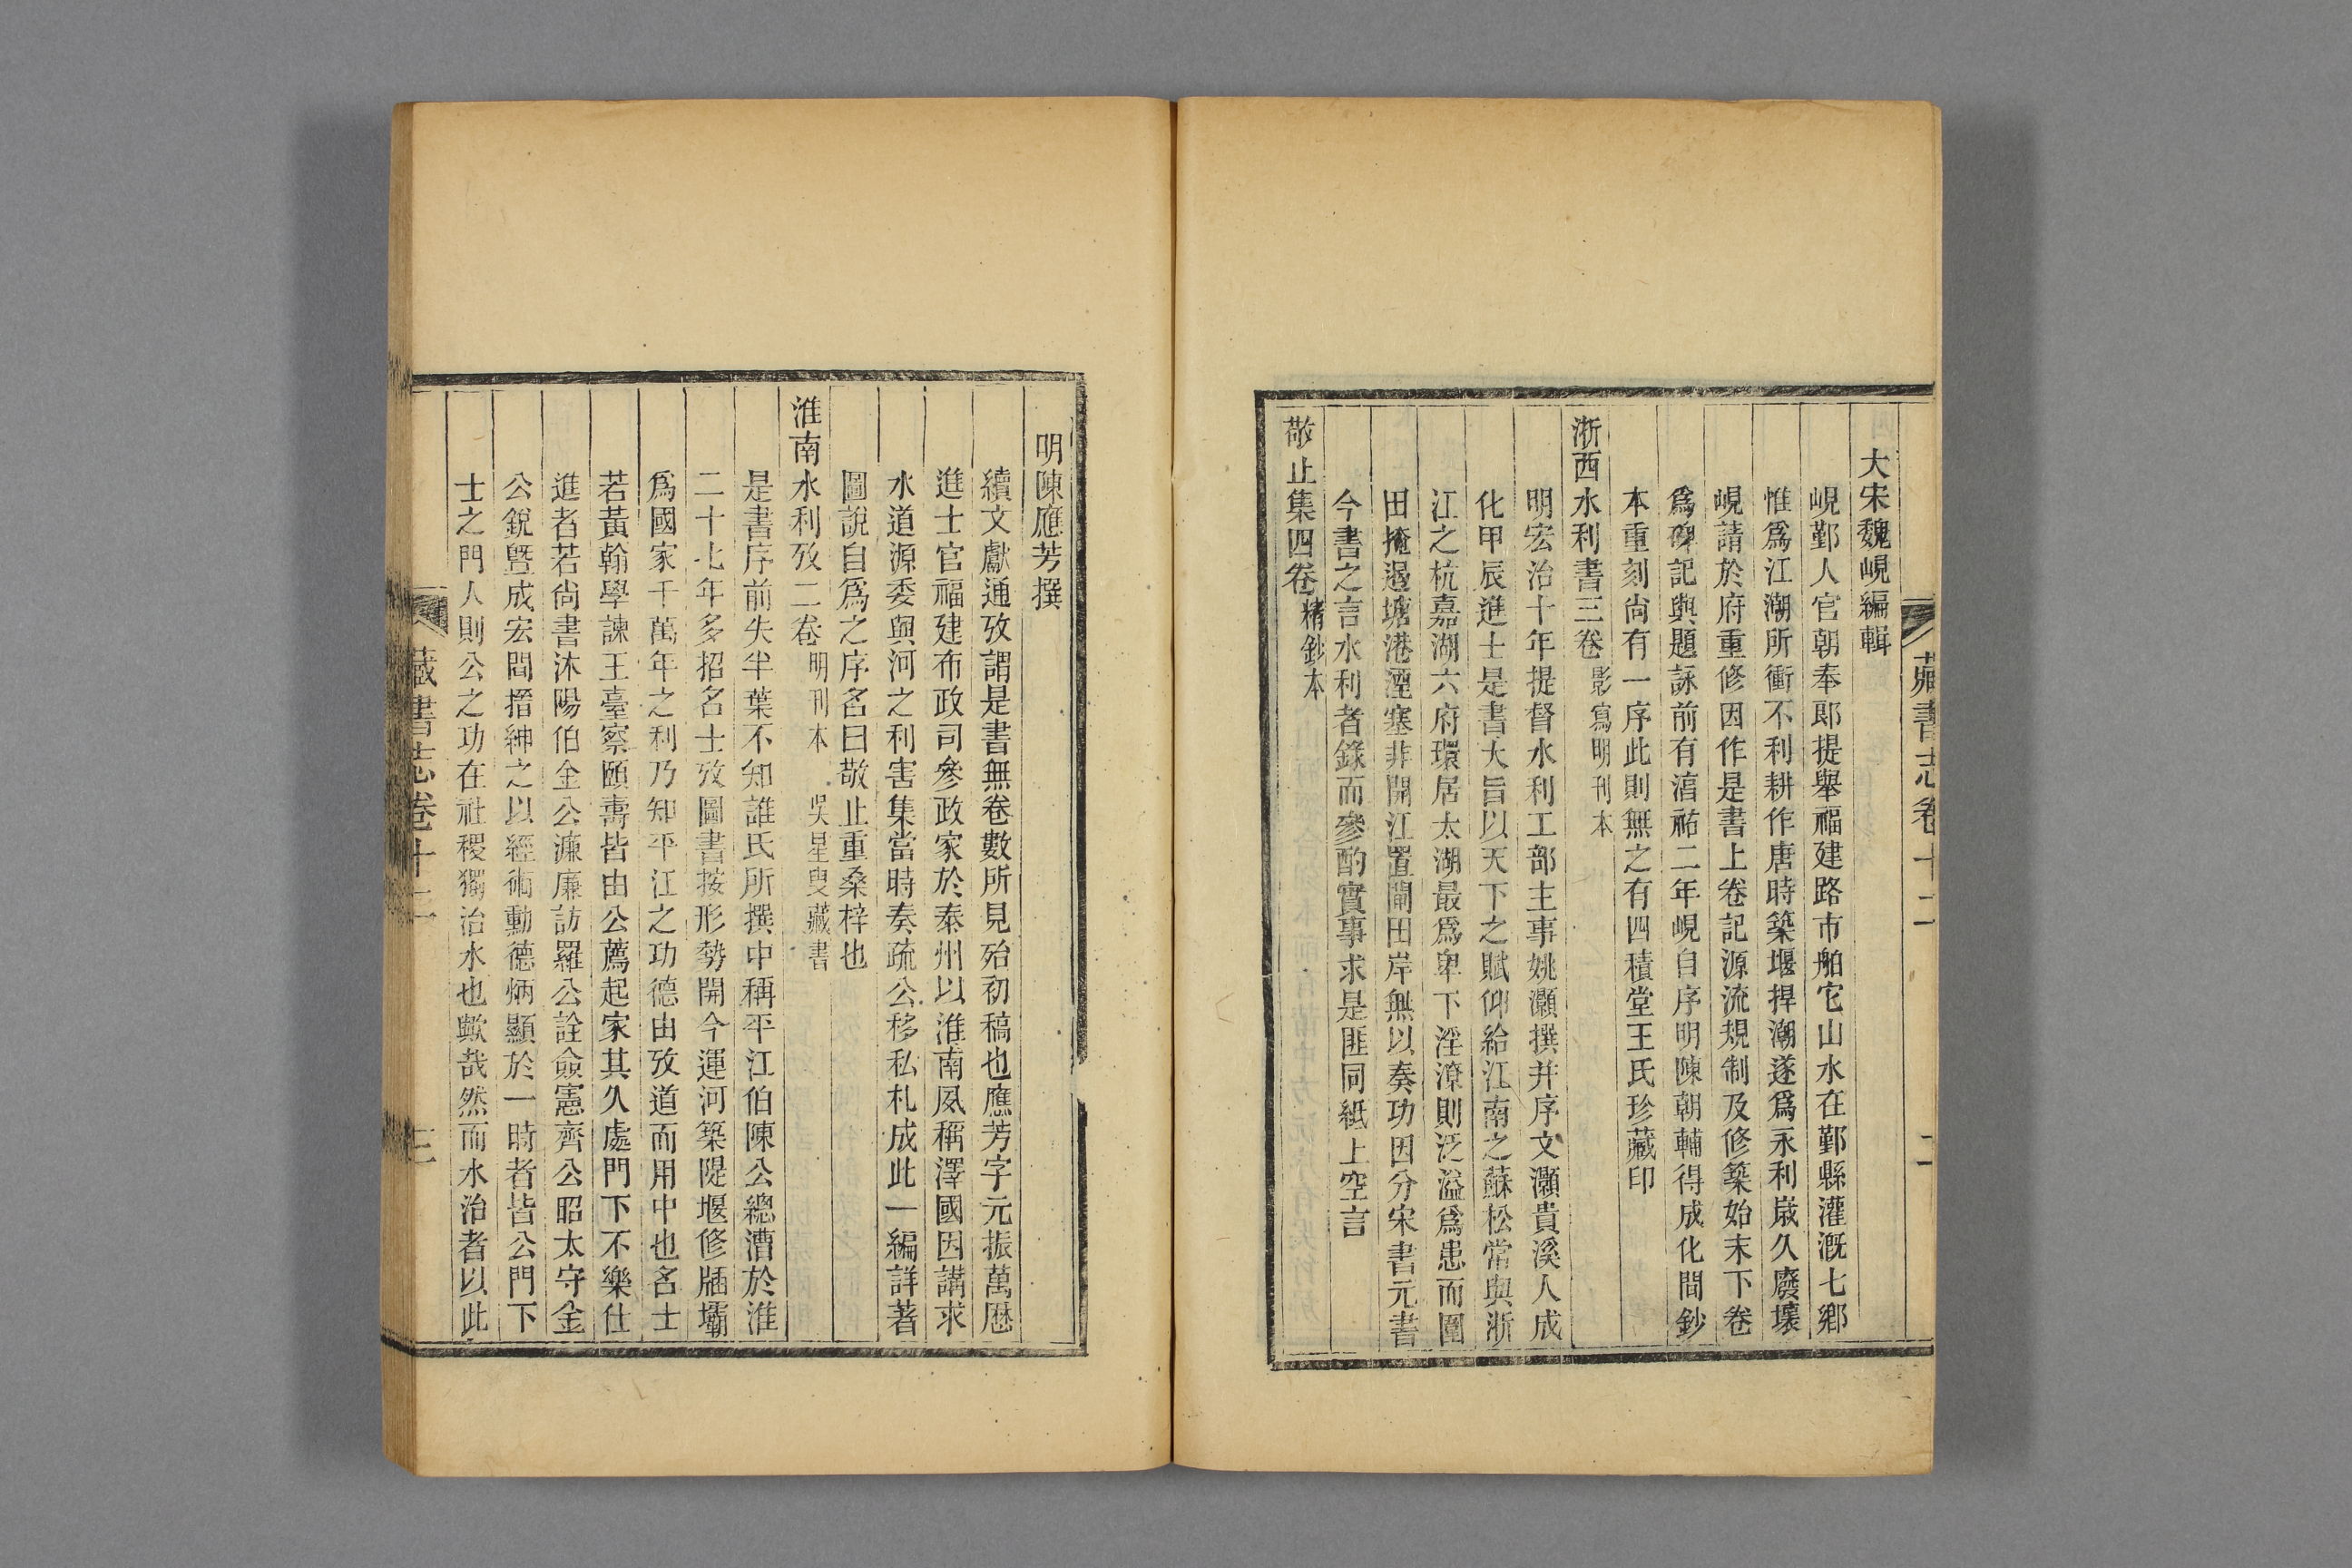 藏書志卷十二　二
大宋魏峴編輯
峴鄞人官朝奉郎提舉福建路市舶它山水在鄞縣灌漑七鄉
惟爲江潮所衝不利耕作唐時築堰捍潮遂爲永利嵗久廢壞
峴請於府重修因作是書上卷記源流規制及修築始末下卷
爲碑記與題詠前有湻祐二年峴自序明陳朝輔得成化間鈔
本重刻尚有一序此則無之有四積堂王氏珍藏印
浙西水利書三卷 影寫明刊本
明宏治十年提督水利工部主事姚灝撰并序文灝貴溪人成
化甲辰進士是書大旨以天下之賦仰給江南之蘇松常與浙
江之杭嘉湖六府環居太湖最爲卑下淫潦則泛溢爲患而圍
田掩遏塘港湮塞非開江置閘田岸無以奏功因分宋書元書
今書之言水利者錄而參酌實事求是匪同紙上空言
敬止集四卷 精鈔本
明陳應芳撰
續文獻通攷謂是書無卷數所見殆初稿也應芳字元振萬厯
進士官福建布政司參政家於泰州以淮南夙稱澤國因講求
水道源委與河之利害集當時奏疏公移私札成此一編詳著
圖說自爲之序名曰敬止重桑梓也
淮南水利攷二卷 明刊本 吳星叟藏書
是書序前失半葉不知誰氏所撰中稱平江伯陳公總漕於淮
二十七年多招名士攷圖書按形勢開今運河築隄堰修牐壩
爲國家千萬年之利乃知平江之功德由攷道而用中也名士
若黃翰學諫王臺察頤壽皆由公薦起家其久處門下不樂仕
進者若尚書沐陽伯金公濂廉訪羅公詮僉憲齊公昭太守金
公銳曁成宏間搢紳之以經術勳德炳顯於一時者皆公門下
士之門人則公之功在社稷獨治水也歟哉然而水治者以此
藏書志卷十二　三